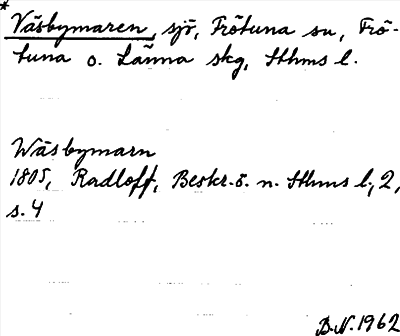 * Väsbymaren, sjö, Frötuna sn, Frö-
tuna o. Länna skg, Sthms l.
Wäsbymarn
1805, Radloff, Beskr. ö. n. Sthms l, 2,
s. 4
B.N. 1962